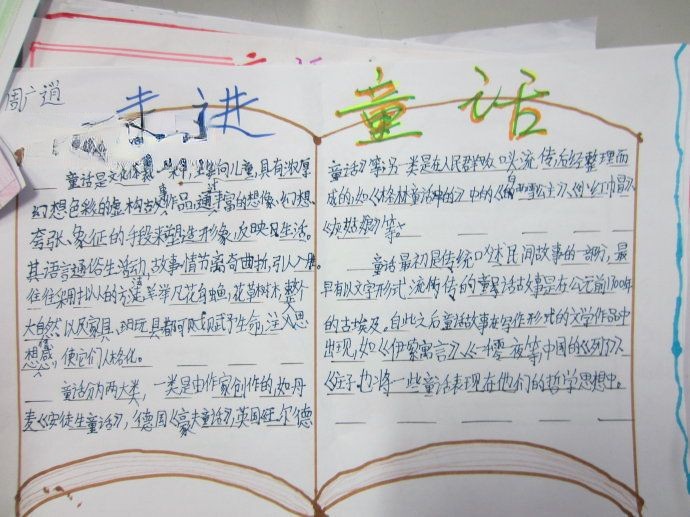 周广逍
走进 童话
童话是文化体裁一种,主要面向儿童,具有浓厚
幻想色彩的虚构故事作品,通过丰富的想像、幻想、
夸张、象征的手段来塑造形象,反映生活。
其语言通俗生动,故事情节离奇曲折,引人入胜。
往往采用拟人的方法,举凡花鸟虫鱼,花草树木,整个
大自然以及家具、玩具都可赋予生命,注入思
想感情,使它们人格化。
童话分为两大类,一类是由作家创作的,如丹
麦《安徒生童话》,德国《豪夫童话》,英国旺尔德
童话》等;另一类是在人民群众口头流传后经整理而
成的,如《格林童话中的》中的《白雪公主》、《小红帽》、
《灰姑娘》等。
童话最初是传统口述民间故事的一部分,最
早有以文字形式流传的童话故事是在公元前1700年
的古埃及。自此之后童话故事在写作形式的文学作品中
出现,如《伊索寓言》《一千零一夜》等,中国的《列子》
《庄子》也将一些童话表现在他们的哲学思想中。